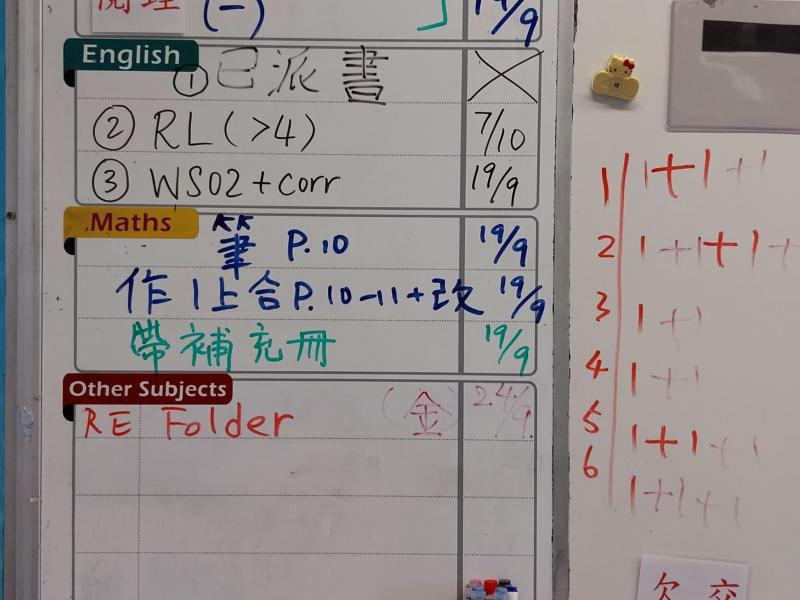 (一) 19/9
English
① 已派書
② RL(>4) 7/10
③ WS02+corr 19/9
Maths
筆 P.10 19/9
作 1上合P.10-11+改 19/9
帶補充冊 19/9
Other Subjects
RE Folder (金) 24/9
1 1+1+1
2 1+1+1+
3 1+1
4 1+1
5 1+1
6 1+1+1
欠交